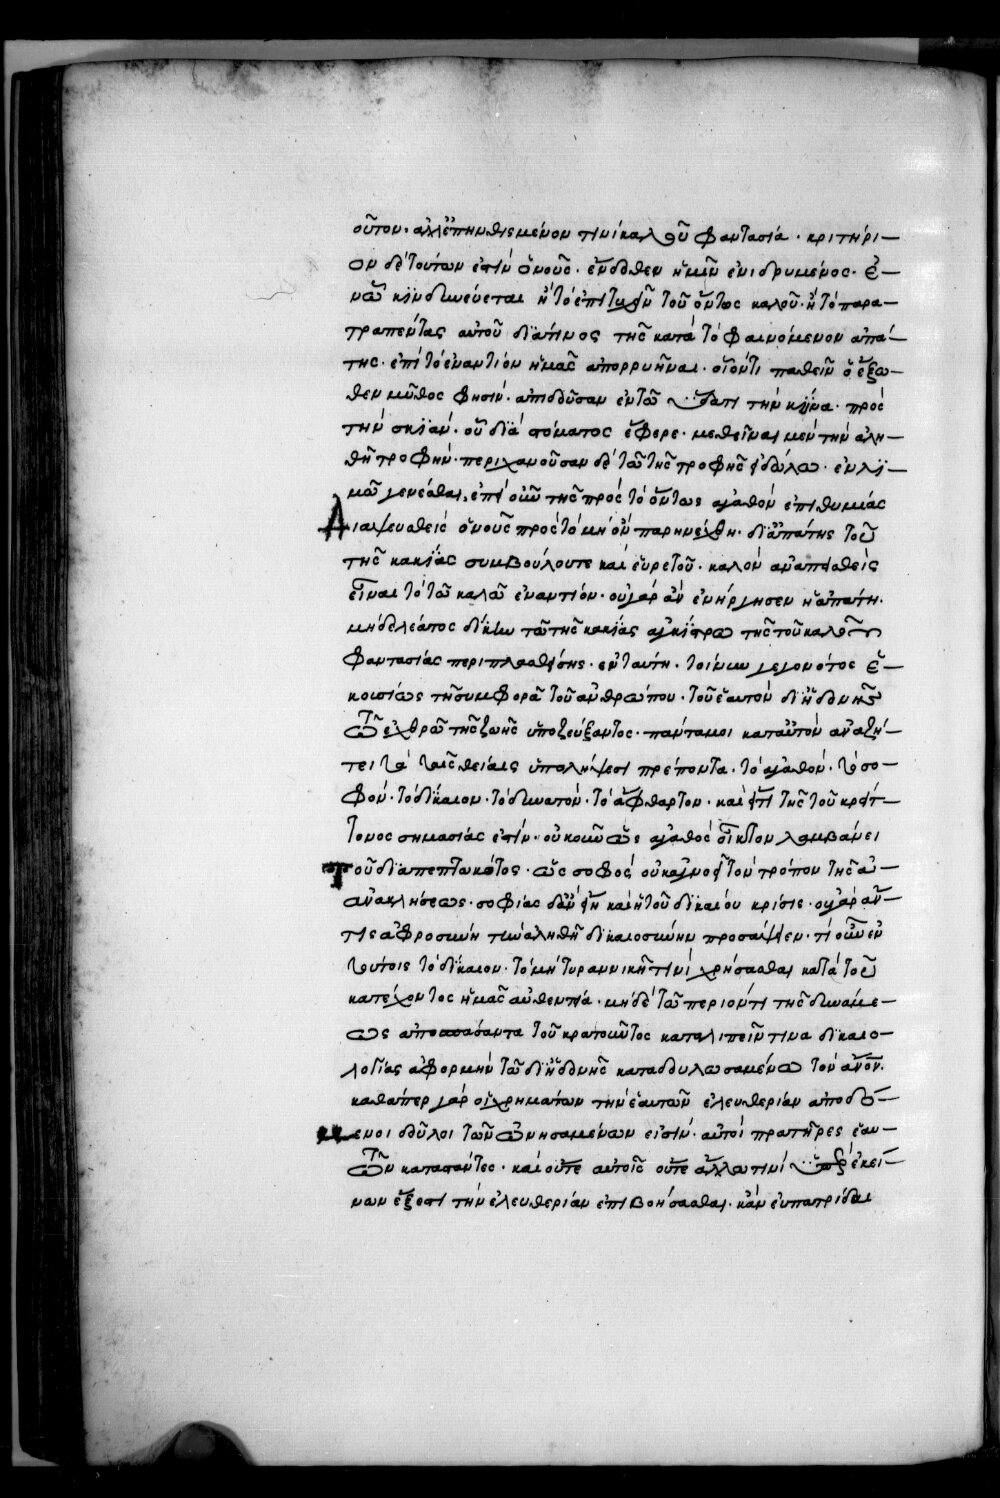 οῦτον· ἀλλ' ἐπηνθισμένον τινὶ καλοῦ φαντασία· κριτήρι-
ον δὲ τούτων ἐστὶν ὁ νοῦς· ἔνδοθεν ἡμῖν ἐνιδρυμένος· ἐ-
νῶ κινδυνεύεται ἢ τὸ ἐπιτυχεῖν τοῦ ὄντως καλοῦ· ἢ τὸ παρα-
τραπέντας αὐτοῦ διά τινος τῆς κατὰ τὸ φαινόμενον ἀπά-
της· ἐπὶ τὸ ἐναντίον ἡμᾶς ἀπορρυῆναι· οἷόν τι παθεῖν ὁ ἔξω-
θεν μῦθος φησίν· ἀπιδοῦσαν ἐν τῶ ὕδατι τὴν κύνα· πρὸς
τὴν σκιὰν· οὗ διὰ στόματος ἔφερε· μεθεῖναι μὲν τὴν ἀλη-
θῆ τροφὴν· περιχανοῦσαν δὲ τῶ τῆς τροφῆς εἰδώλω· ἐν λι-
μῶ γενέσθαι, ἐπεὶ οὖν τῆς πρὸς τὸ ὄντως ἀγαθὸν ἐπιθυμίας
Διαψευσθεὶς ὁ νοῦς πρὸς τὸ μὴ ὂν παρηνέχθη· δι' ἀπάτης τοῦ
τῆς κακίας συμβούλου τε καὶ εὑρετοῦ· καλὸν ἀναπεισθεὶς
εἶναι τὸ τῶ καλῶ ἐναντίον· οὐ γὰρ ἂν ἐνήργησεν ἡ ἀπάτη·
μὴ δελέατος δίκην τῶ τῆς κακίας ἀγκίστρω τῆς τοῦ καλοῦ
φαντασίας περιπλασθείσης· ἐν ταύτη· τοίνυν γεγονότος ἑ-
κουσίως τῆ συμφορᾶ τοῦ ἀνθρώπου· τοῦ ἑαυτὸν δι' ἡδονῆς
τῶ ἐχθρῶ τῆς ζωῆς ὑποζεύξαντος· πάντα μοι κατ' αὐτὸν ἀναζή-
τει τὰ ταῖς θείαις ὑπολήψεσι πρέποντα· τὸ ἀγαθόν· τὸ σο-
φόν· τὸ δίκαιον· τὸ δυνατόν· τὸ ἄφθαρτον· καὶ εἴ τι τῆς τοῦ κρείτ-
τονος σημασίας ἐστίν· οὐκοῦν ὡς ἀγαθὸς οἶκτον λαμβάνει
τοῦ διαπεπτωκότος· ὡς σοφὸς οὐκ ἀγνοεῖ τὸν τρόπον τῆς ἀ-
ἀνακλήσεως· σοφίας δ' ἂν εἴη καὶ ἡ τοῦ δικαίου κρίσις· οὐ γὰρ ἄν
τις ἀφροσύνη τὴν ἀληθῆ δικαιοσύνην προσάψειεν· τί οὖν ἐν
τούτοις τὸ δίκαιον· τὸ μὴ τυραννικῆ τινὶ χρήσασθαι κατὰ τοῦ
κατέχοντος ἡμᾶς αὐθεντία· μηδὲ τῶ περιόντι τῆς δυνάμε-
ως ἀποσπάσαντα τοῦ κρατοῦντος καταλιπεῖν τινα δικαιο-
λογίας ἀφορμὴν τῶ δι' ἡδονῆς καταδουλωσαμένω τὸν ἄνον·
καθάπερ γὰρ οἱ χρημάτων τὴν ἑαυτῶν ἐλευθερίαν ἀποδό-
μενοι δοῦλοι τῶν ὠνησαμένων εἰσὶν· αὐτοὶ πρατῆρες ἑαυ-
τῶν καταστάντες· καὶ οὔτε αὐτοῖς οὔτε ἄλλω τινὶ ὑπὲρ ἐκεί-
νων ἔξεστι τὴν ἐλευθερίαν ἐπιβοήσασθαι· κἂν εὐπατρίδαι